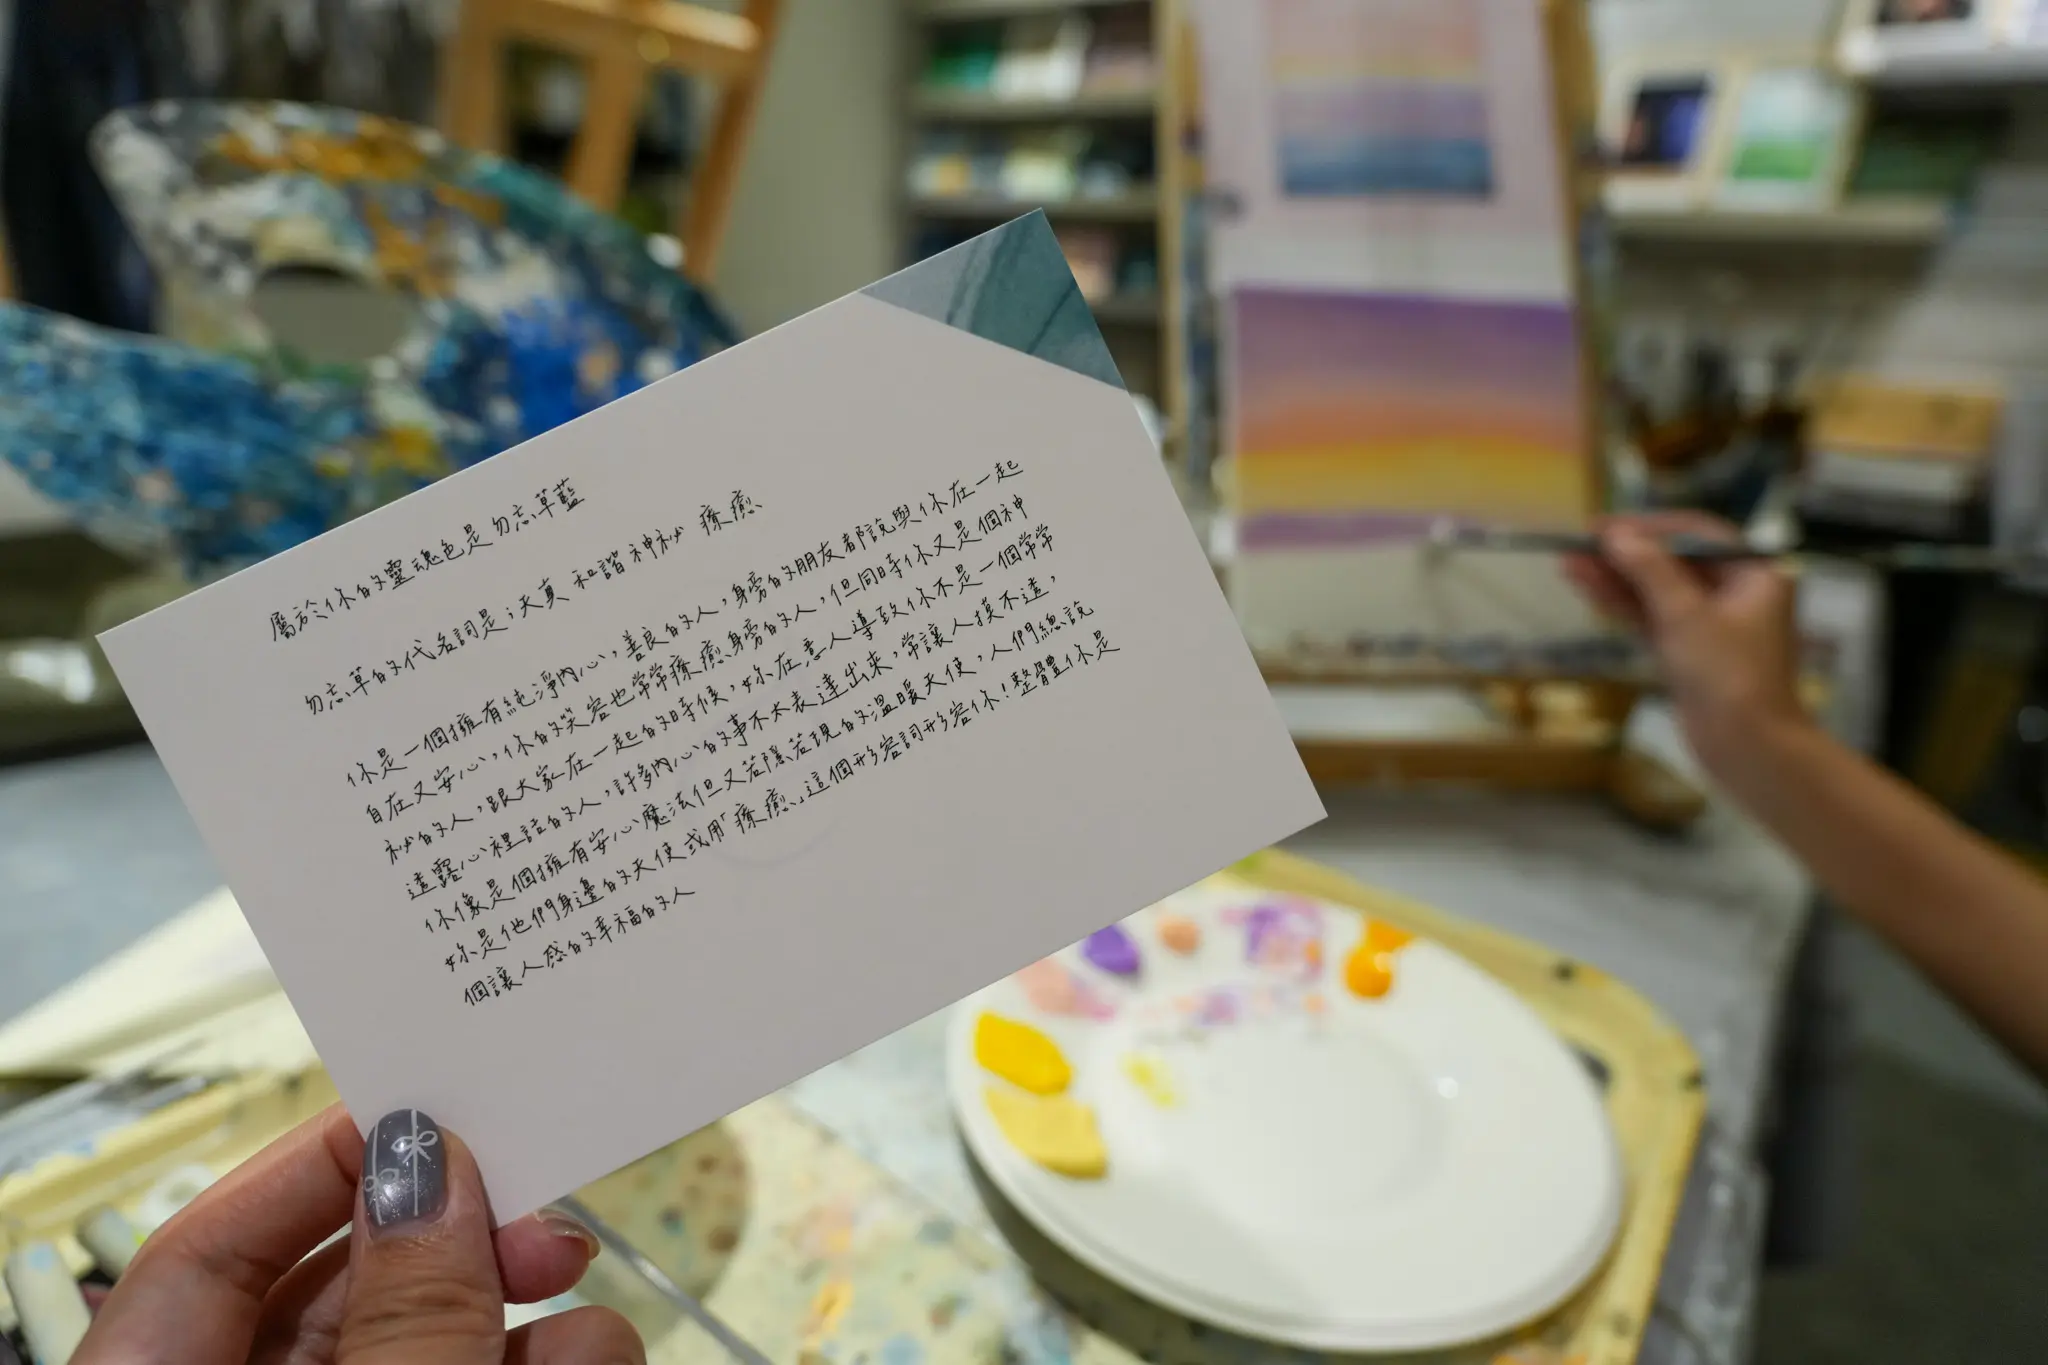 屬於你的靈魂色是勿忘草藍
勿忘草的代名詞是;天真 和諧 神秘 療癒
你是一個擁有純淨內心,善良的人,身旁的朋友都說與你在一起
自在又安心,你的笑容也常常療癒身旁的人,但同時你又是個神
祕的人,跟大家在一起的時候,妳在意人導致你不是一個常常
透露心裡話的人,許多內心的事不太表達出來,常讓人摸不透,
你像是個擁有安心魔法但又若隱若現的溫暖天使,人們總說
妳是他們身邊的天使或用「療癒」這個形容詞形容你!整體你是
個讓人感的幸福的人